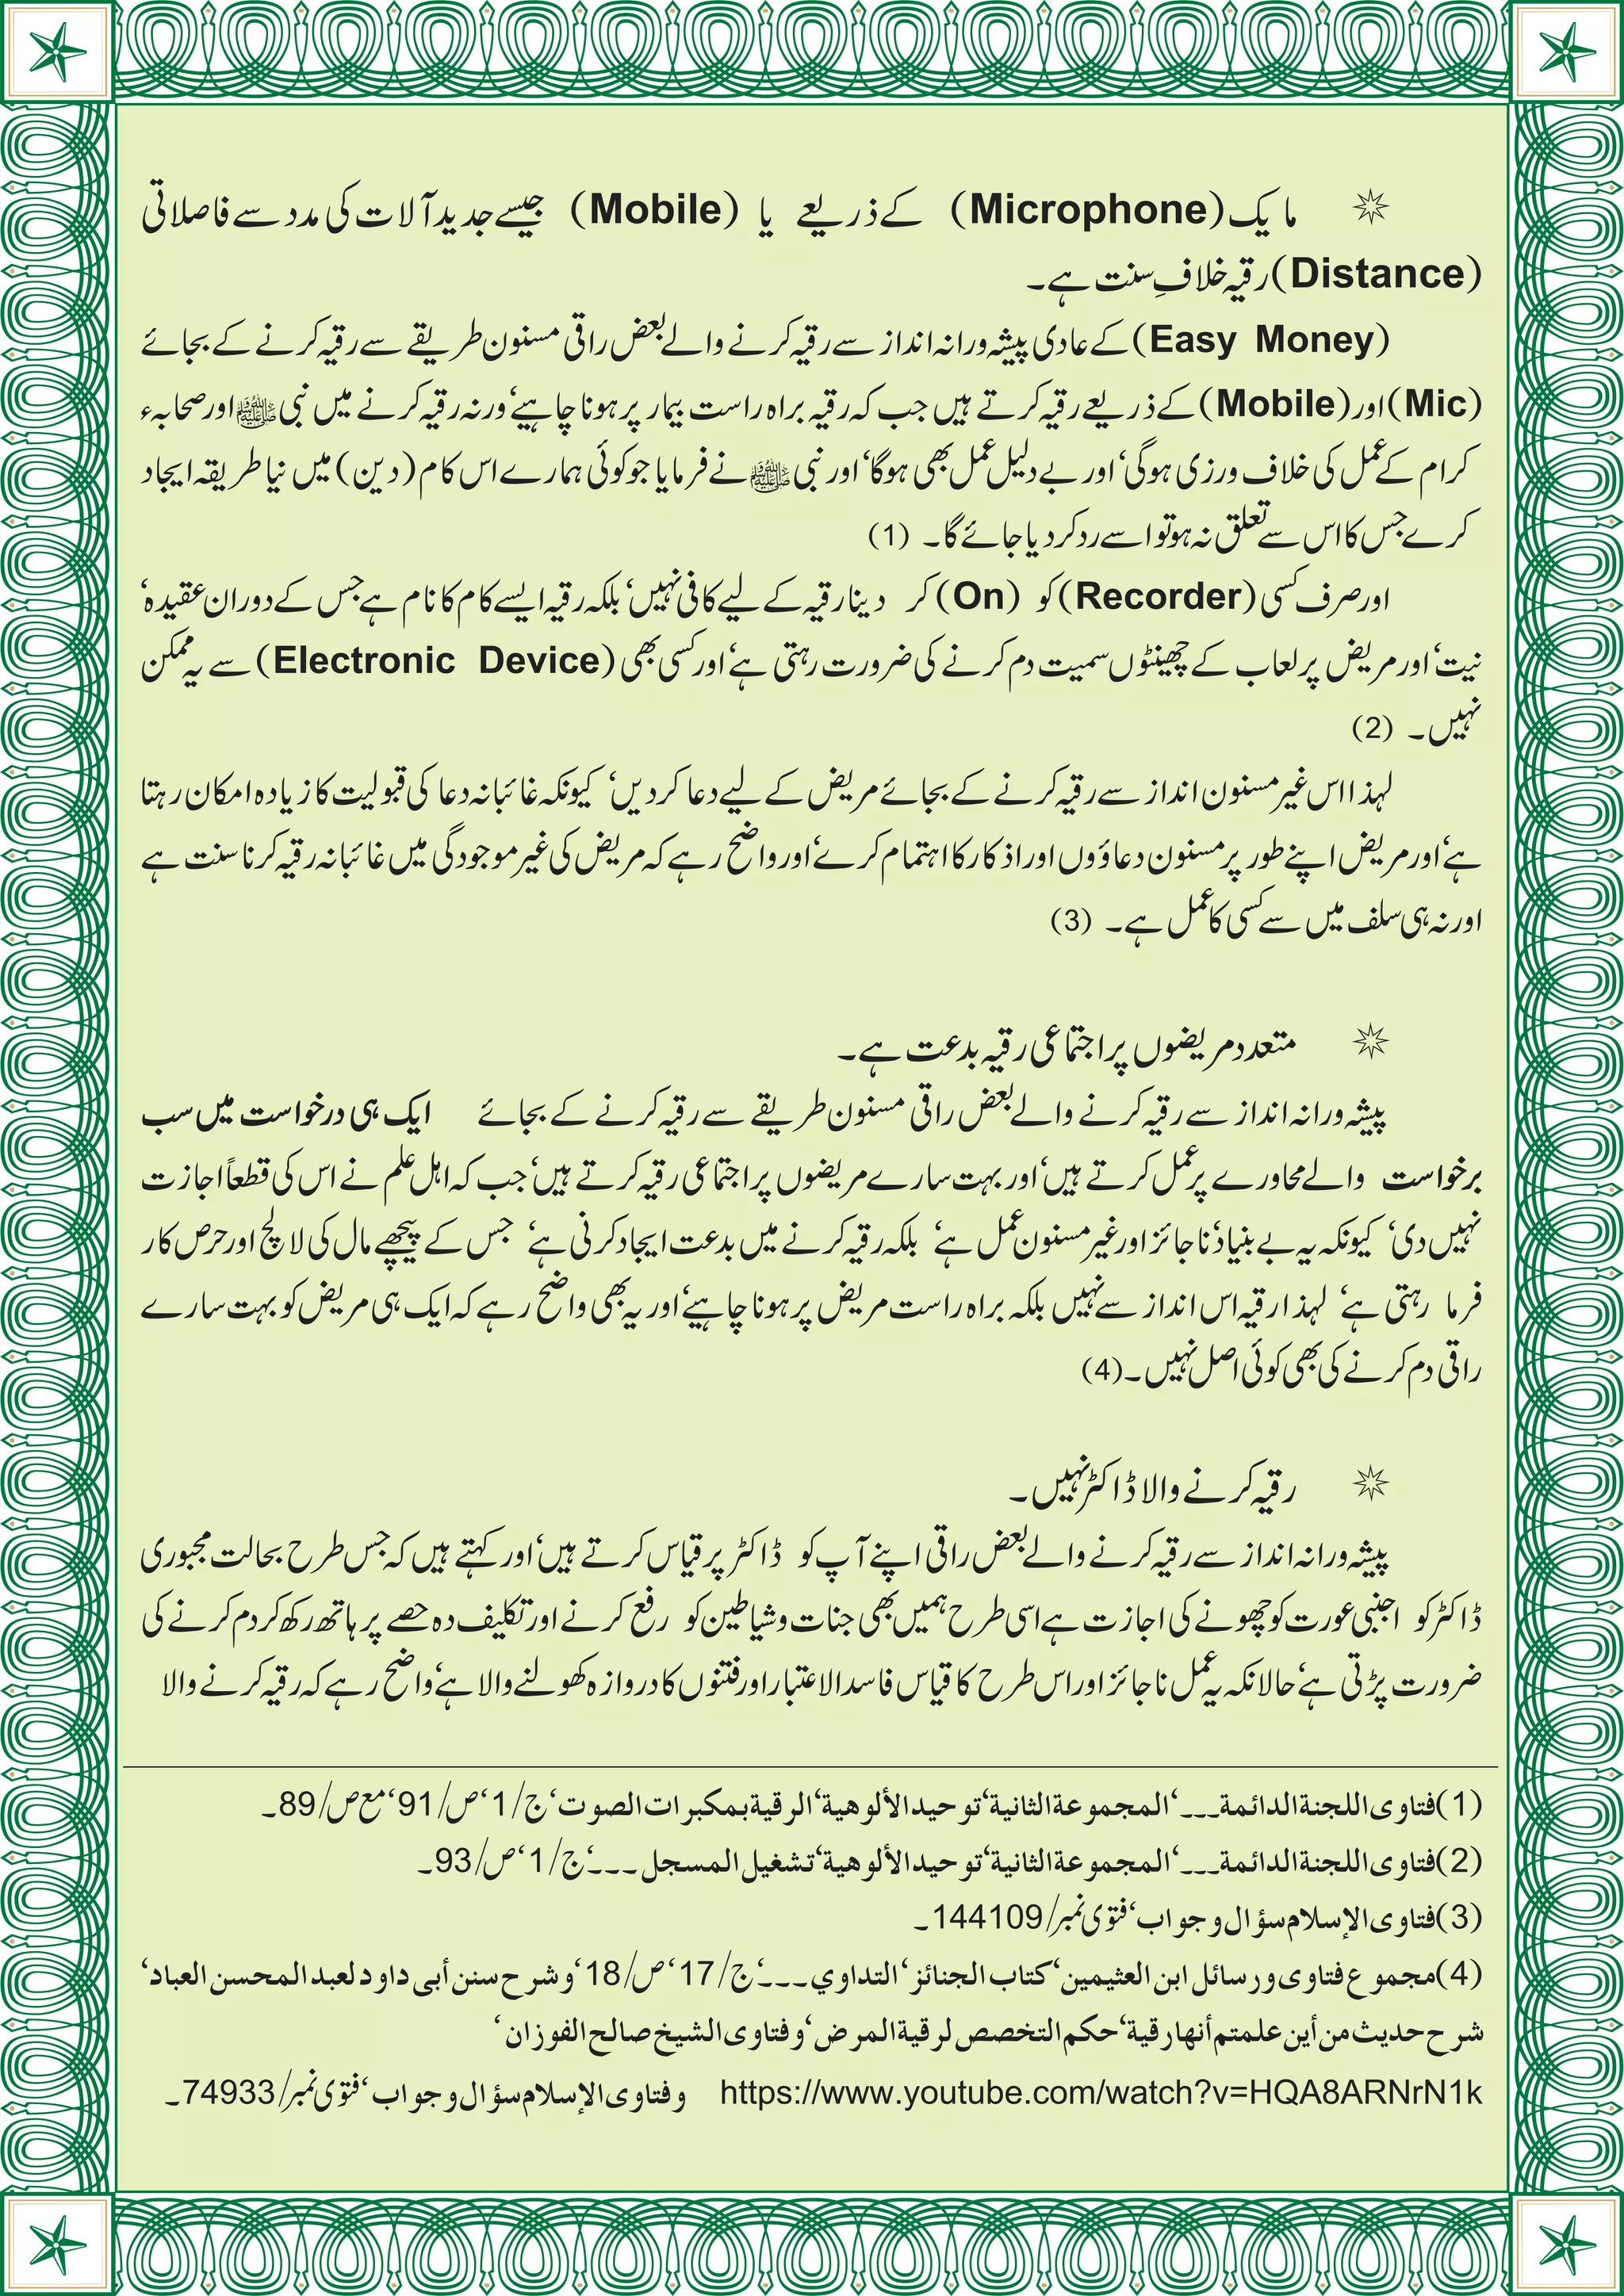 مایک (Microphone) کے ذریعے یا (Mobile) جیسے جدید آلات کی مدد سے فاصلاتی
(Distance) رقیہ خلافِ سنت ہے۔
(Easy Money) کے عادی پیشہ ورانہ انداز سے رقیہ کرنے والے بعض راقی مسنون طریقے سے رقیہ کرنے کے بجائے
(Mic) اور (Mobile) کے ذریعے رقیہ کرتے ہیں جب کہ رقیہ براہ راست بیمار پر ہونا چاہیے‘ ورنہ رقیہ کرنے میں نبی ﷺ اور صحابہء
کرام کے عمل کی خلاف ورزی ہوگی‘ اور بے دلیل عمل بھی ہوگا‘ اور نبی ﷺ نے فرمایا جو کوئی ہمارے اس کام (دین) میں نیا طریقہ ایجاد
کرے جس کا اس سے تعلق نہ ہو تو اسے رد کر دیا جائے گا۔ (1)
اور صرف کسی (Recorder) کو (On) کر دینا رقیہ کے لیے کافی نہیں‘ بلکہ رقیہ ایسے کام کا نام ہے جس کے دوران عقیدہ‘
نیت‘ اور مریض پر لعاب کے چھینٹوں سمیت دم کرنے کی ضرورت رہتی ہے‘ اور کسی بھی (Electronic Device) سے یہ ممکن
نہیں۔ (2)
لہذا اس غیر مسنون انداز سے رقیہ کرنے کے بجائے مریض کے لیے دعا کر دیں‘ کیونکہ غائبانہ دعا کی قبولیت کا زیادہ امکان رہتا
ہے‘ اور مریض اپنے طور پر مسنون دعاؤوں اور اذکار کا اہتمام کرے‘ اور واضح رہے کہ مریض کی غیر موجودگی میں غائبانہ رقیہ کرنا سنت ہے
اور نہ ہی سلف میں سے کسی کا عمل ہے۔ (3)
متعدد مریضوں پر اجتماعی رقیہ بدعت ہے۔
پیشہ ورانہ انداز سے رقیہ کرنے والے بعض راقی مسنون طریقے سے رقیہ کرنے کے بجائے ایک ہی درخواست میں سب
برخواست والے محاورے پر عمل کرتے ہیں‘ اور بہت سارے مریضوں پر اجتماعی رقیہ کرتے ہیں‘ جب کہ اہل علم نے اس کی قطعاً اجازت
نہیں دی‘ کیونکہ یہ بے بنیاد‘ ناجائز اور غیر مسنون عمل ہے‘ بلکہ رقیہ کرنے میں بدعت ایجاد کرنی ہے‘ جس کے پیچھے مال کی لالچ اور حرص کار
فرما رہتی ہے‘ لہذا رقیہ اس انداز سے نہیں بلکہ براہ راست مریض پر ہونا چاہیے‘ اور یہ بھی واضح رہے کہ ایک ہی مریض کو بہت سارے
راقی دم کرنے کی بھی کوئی اصل نہیں۔ (4)
رقیہ کرنے والا ڈاکٹر نہیں۔
پیشہ ورانہ انداز سے رقیہ کرنے والے بعض راقی اپنے آپ کو ڈاکٹر پر قیاس کرتے ہیں‘ اور کہتے ہیں کہ جس طرح بحالت مجبوری
ڈاکٹر کو اجنبی عورت کو چھونے کی اجازت ہے اسی طرح ہمیں بھی جنات و شیاطین کو رفع کرنے اور تکلیف دہ حصے پر ہاتھ رکھ کر دم کرنے کی
ضرورت پڑتی ہے‘ حالانکہ یہ عمل ناجائز اور اس طرح کا قیاس فاسد الاعتبار اور فتنوں کا دروازہ کھولنے والا ہے‘ واضح رہے کہ رقیہ کرنے والا
(1) فتاوى اللجنة الدائمة۔۔۔‘ المجموعة الثانية‘ توحيد الألوهية‘ الرقية بمكبرات الصوت‘ ج/1‘ ص/91‘ مع ص/89۔
(2) فتاوى اللجنة الدائمة۔۔۔‘ المجموعة الثانية‘ توحيد الألوهية‘ تشغيل المسجل۔۔۔‘ ج/1‘ ص/93۔
(3) فتاوى الإسلام سؤال وجواب‘ فتوی نمبر/144109۔
(4) مجموع فتاوى ورسائل ابن العثيمين‘ كتاب الجنائز‘ التداوي۔۔۔‘ ج/17‘ ص/18‘ وشرح سنن أبى داود لعبد المحسن العباد‘
شرح حديث من أين علمتم أنها رقية‘ حكم التخصص لرقية المرض‘ وفتاوى الشيخ صالح الفوزان‘
https://www.youtube.com/watch?v=HQA8ARNrN1k وفتاوى الإسلام سؤال وجواب‘ فتوی نمبر/74933۔